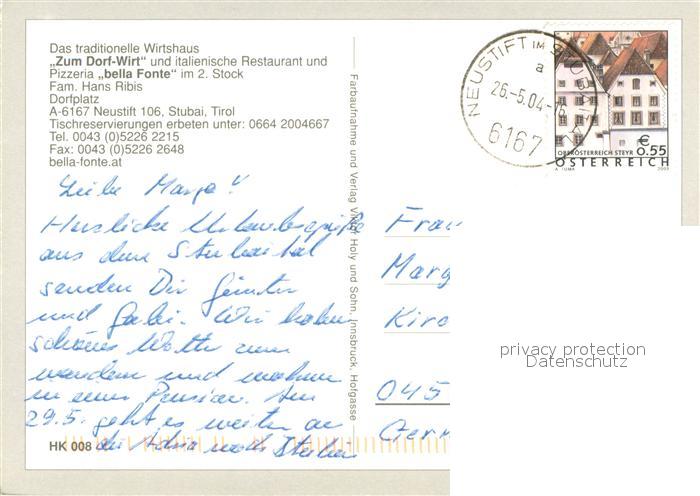 Das traditionelle Wirtshaus
„Zum Dorf-Wirt“ und italienische Restaurant und
Pizzeria „bella Fonte“ im 2. Stock
Fam. Hans Ribis
Dorfplatz
A-6167 Neustift 106, Stubai, Tirol
Tischreservierungen erbeten unter: 0664 2004667
Tel. 0043 (0)5226 2215
Fax: 0043 (0)5226 2648
bella-fonte.at
Liebe Marga!
Herzliche Urlaubsgrüße
aus dem Stubaital
senden Dir Günter
und Gabi. Wir haben
schönes Wetter zum
wandern und wohnen
in einer Pension. Am
29.5. geht es weiter an
die Adria nach
HK 008
Farbaufnahme und Verlag Viktor Holy und Sohn, Innsbruck, Hofgasse
NEUSTIFT IM STUBAITAL
a
26.-5.04-
6167
OBERÖSTERREICH STEYR
€
0.55
ÖSTERREICH
A. TUMA 2003
Frau
Marg
Kirc
045
Ger
privacy protection
Datenschutz